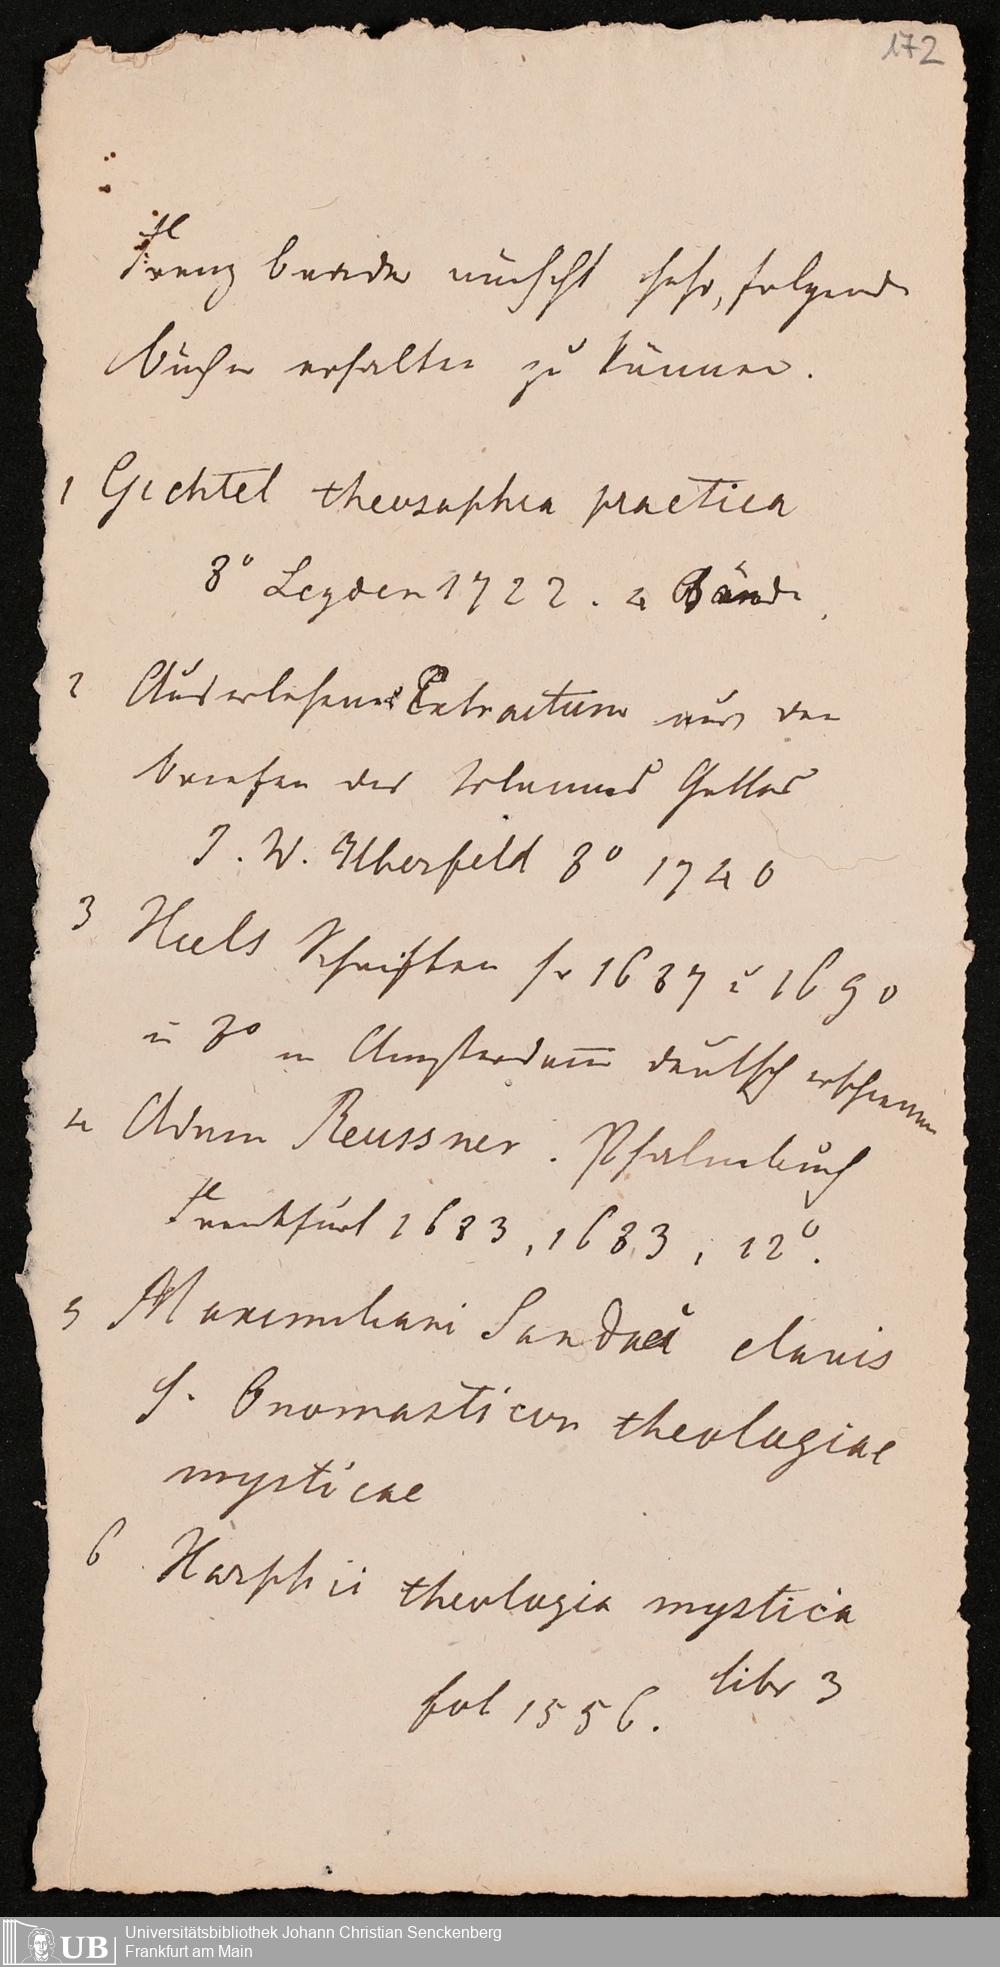 172
Franz baader wünscht sehr, folgende
bücher erhalten zu können.
1 Gichtel theosophia practica
8° Leyden 1722. 4 Bände.
2 Auserlesenes Extractum aus den
briefen des Mannes Gottes
J. W. Uberfeld 8° 1740
3 Hiels Schriften so 1687 u 1690
in 8° in Amsterdam̅ deutsch erschienen
4 Adam Reussner. Psalmbuch
Frankfurt 1683, 1683, 12°.
5 Maximiliani Sandaei clavis
s. Onomasticon theologiae
mysticae
6 Harphii theologia mystica
libr 3
fol 1556.
UB
Universitätsbibliothek Johann Christian Senckenberg
Frankfurt am Main